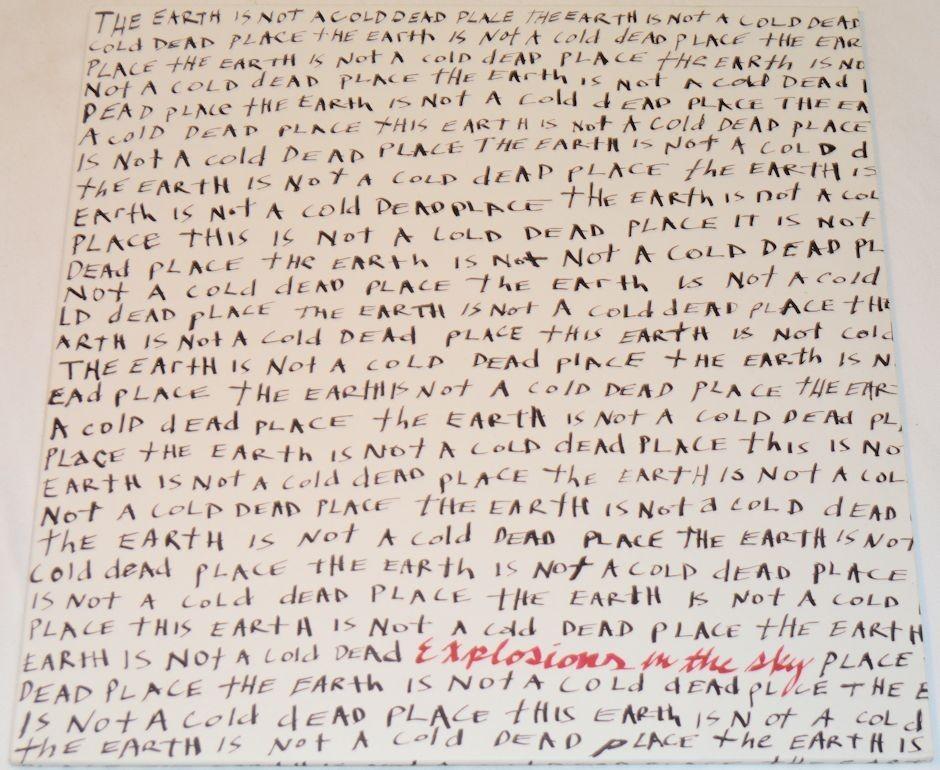 THE EARTH IS NOT A COLD DEAD PLALE THE EARTH IS NOT A COLD DEAD
COLd DEAD PLACE tHE EArth IS NOtA Cold dEAD PLACE tHE EAR
PLACE tHE EARTH IS NOt A COLD dEAD PLACE tHE EARTH IS NO
NOt A COLD dEAD PLACE tHE EArth IS Not A COLD DEAD
DEAD PLACE tHE EARth IS NOt A Cold d EAD PLACE THE EA
A COlD DEAD PLACE tHIS EARTH IS Not A COld DEAD PLACE
IS Not A cold DEAD PLACE THE EARTH IS NOt A COLD d
thE EARTH IS NOT A COLD dEAD PLACE thE EARTH IS
EArth IS Not A COld DEAD PLACE tHE EARTH IS not A COL
PLACE THIS IS NOt A LOLD DEAD PLACE IT IS NOt
DEAd PLACE tHE EARth IS Not Not A COLD DEAD PL
NOt A COLd dEAD PLACE tHE EArth IS NOt A COld
LD dEAD pLACE THE EARTH IS NOt A COLd dEAD PLACE tHE
ARTH IS Not A COld DEAd PLACE tHIS EARtH IS Not COld
THE EArtH IS Not A COLD DEAD plACE tHE EARth IS N
EAd PLACE THE EARtH IS Not A COlD DEAD PLACE tHE EAR
A colD dEAd PLACE thE EARTH IS NOt A COLD DEAd PL
PLACE tHE EARth IS NOt A COLD dEAd PLACE thIS IS NO
EARTH IS Not A COld dEAD pLACE tHE EARTH IS Not A COL
NOt A COLD DEAD PLACE tHE EARtH IS Not a COLD dEAD
thE EARTH IS NOt A COLd DEAD PLACE THE EARTH IS NOT
COld deAd PLACE tHE EARth IS NOt A COLD dEAD PLACE
IS NOt A COLd dEAD PLACE tHE EARtH IS NOt A COLD
PLACE tHIS EARtH IS NOt A COld DEAD PLACE tHE EARTH
EARtH IS NOt A COld DEAD Explosions in the sky PLACE
DEAD PLACE tHE EARth IS NOt A COLd dEAd pLACE THE E
IS NOt A COld dEAD PLACE tHIS EARth IS NOt A COLd
thE EARTH IS NOt A COld DEAD pLACE the EARTH IS